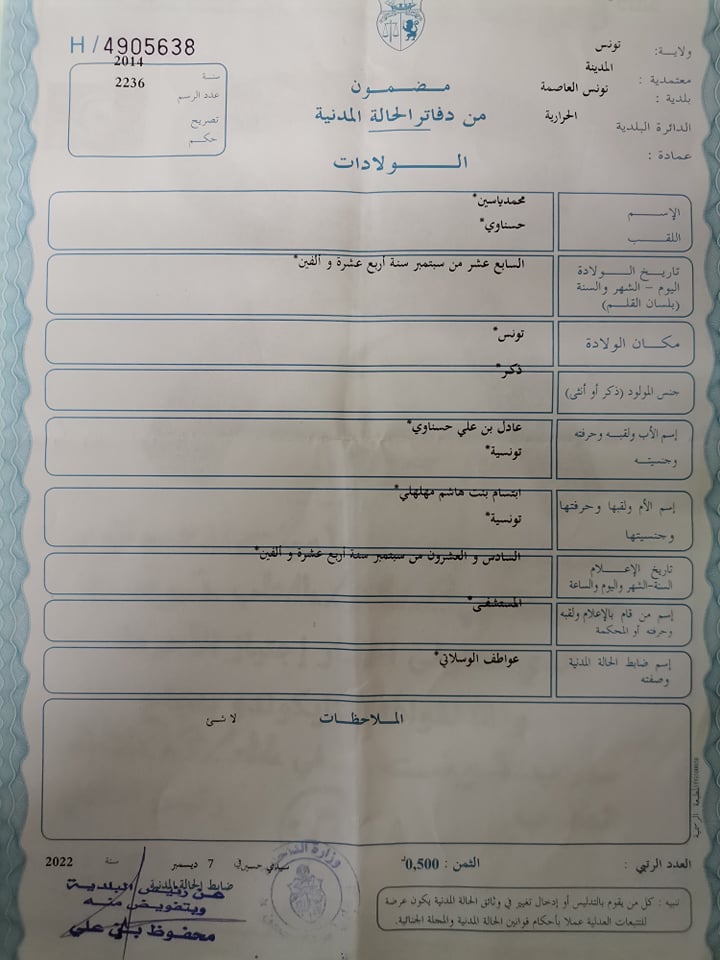 H/4905638
2014
سنة
2236
عدد الرسم
تصريح
حكم
ولاية: تونس
معتمدية : المدينة
بلدية : تونس العاصمة
الدائرة البلدية الحرارية
عمادة :
مضمون
من دفاتر الحالة المدنية
الولادات
الإسم محمدياسين*
اللقب حسناوي*
تاريخ الولادة السابع عشر من سبتمبر سنة أربع عشرة و ألفين*
اليوم – الشهر والسنة
(بلسان القلم)
مكان الولادة تونس*
جنس المولود (ذكر أو أنثى) ذكر*
إسم الأب ولقبه وحرفته عادل بن علي حسناوي*
وجنسيته تونسية*
إسم الأم ولقبها وحرفتها ابتسام بنت هاشم مهلهلي*
وجنسيتها تونسية*
تاريخ الإعلام السادس و العشرون من سبتمبر سنة أربع عشرة و ألفين*
السنة-الشهر واليوم والساعة
إسم من قام بالإعلام ولقبه المستشفى*
وحرفته أو المحكمة
إسم ضابط الحالة المدنية عواطف الوسلاتي*
وصفته
الملاحظات
لا شئ
المطبعة الرسمية
العدد الرتبي : الثمن : 0,500د
سيدي حسين في 7 ديسمبر سنة 2022
ضابط الحالة المدنية
عن رئيس البلدية
وبتفويض منه
محفوظ بن علي
وزارة الداخلية
تنبيه : كل من يقوم بالتدليس أو إدخال تغيير في وثائق الحالة المدنية يكون عرضة
للتتبعات العدلية عملا بأحكام قوانين الحالة المدنية والمجلة الجنائية.